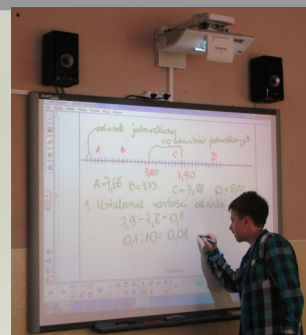 odcinek jednostkowy
10 odcinków jednostkowych
A B C D
7,80 7,90
A=7,66 B=7,73 C=7,88 D=8,02
1. Ustalenie wartości odcinka
7,9-7,8=0,1
0,1:10=0,01